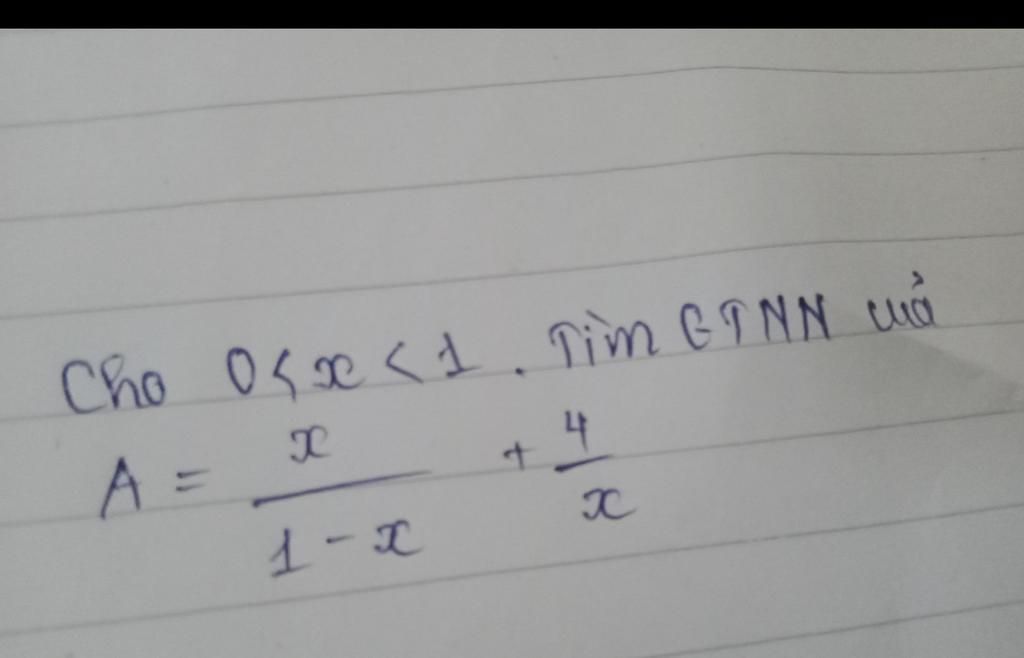 Cho 0 < x < 1 . Tìm GTNN của
A = x/(1 - x) + 4/x